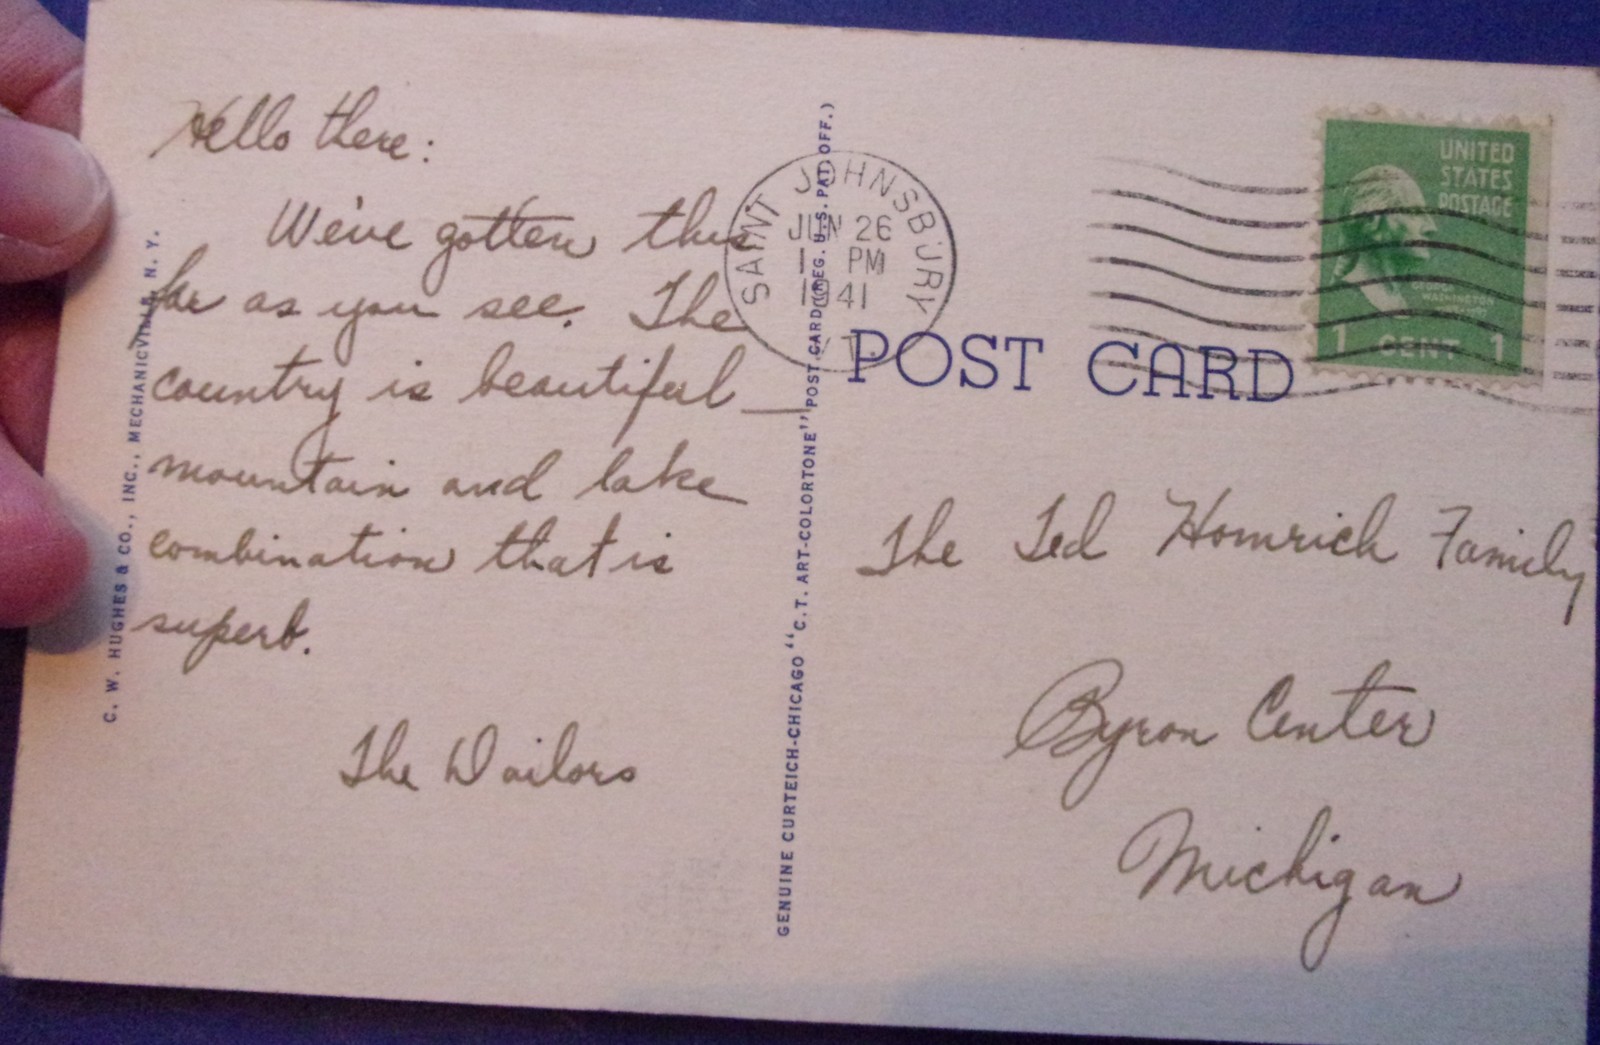 Hello there:
We've gotten this
far as you see. The
country is beautiful —
mountain and lake
combination that is
superb.
The Dailors
C. W. HUGHES & CO., INC., MECHANICVILLE, N. Y.
GENUINE CURTEICH-CHICAGO "C.T. ART-COLORTONE" POST CARD (REG. U.S. PAT. OFF.)
SAINT JOHNSBURY
JUN 26
1 PM
1941
VT.
POST CARD
UNITED
STATES
POSTAGE
GEORGE
WASHINGTON
1 CENT 1
The Ted Homrich Family
Byron Center
Michigan